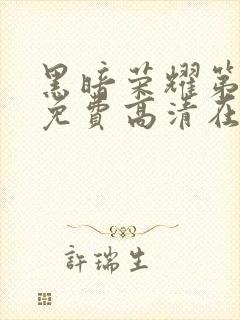 黑暗荣耀第
免费高清在
許瑞生